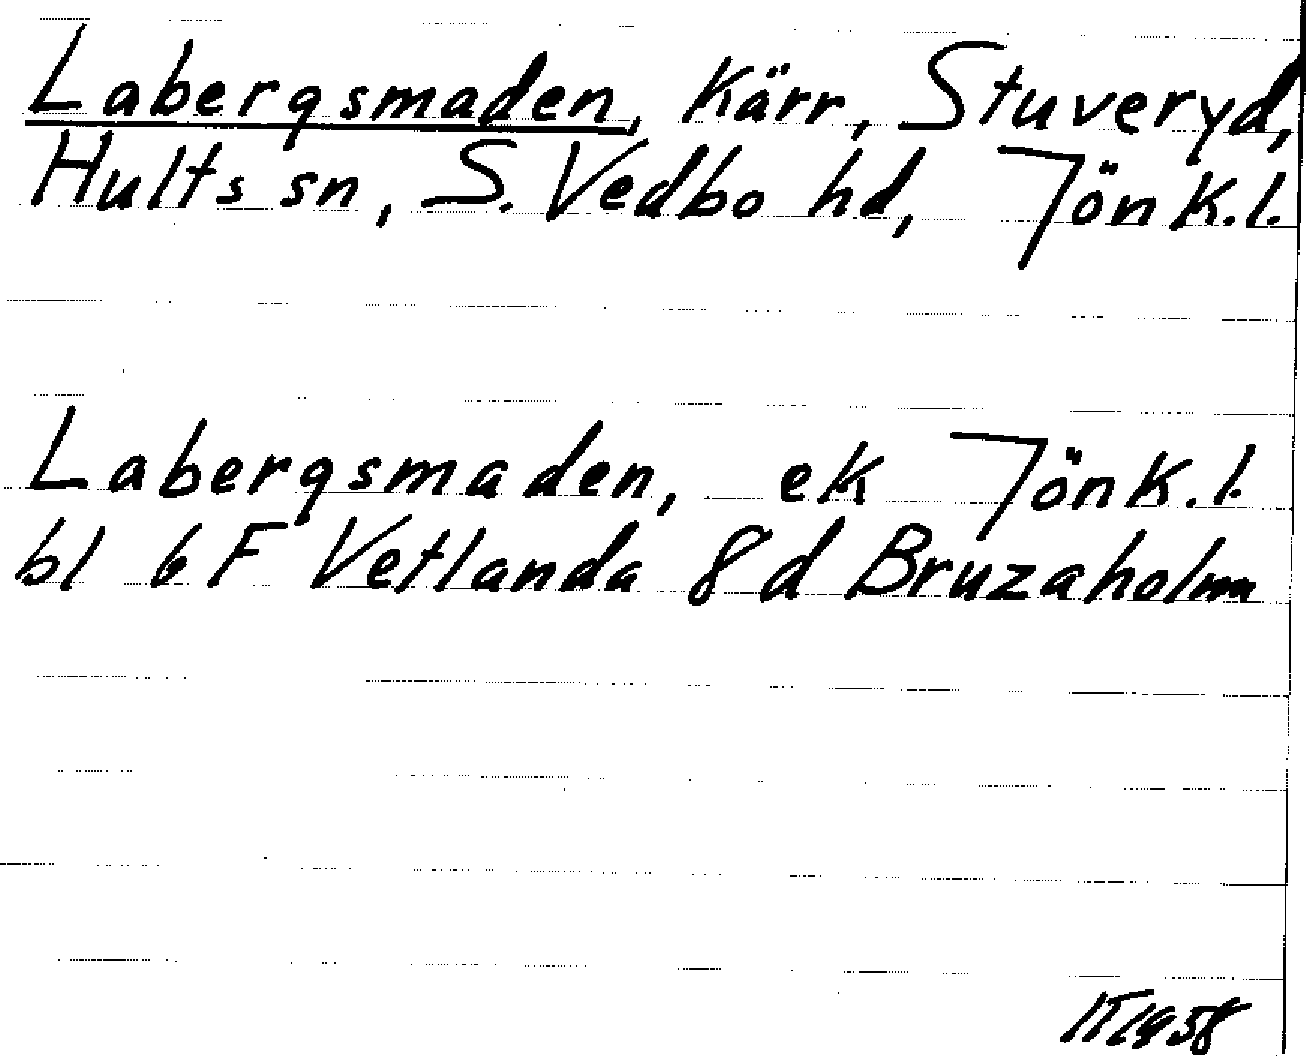 Labergsmaden, Kärr, Stuveryd,
Hults sn, S. Vedbo hd, Jönk.l.
Labergsmaden, ek Jönk.l.
bl 6F Vetlanda 8d Bruzaholm
1958